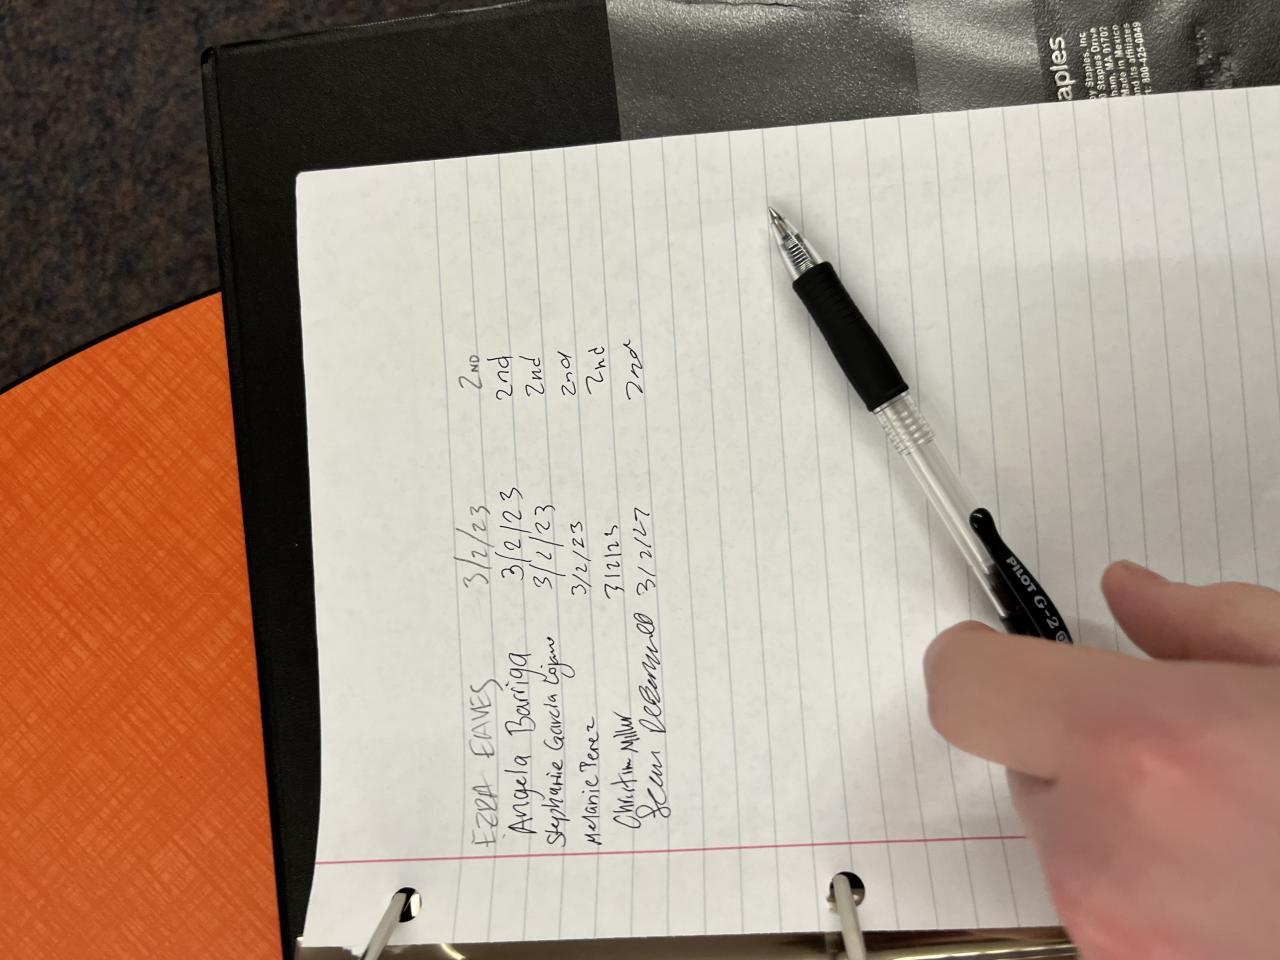 EZRA EAVES 3/2/23 2ND
Angela Barriga 3/2/23 2nd
Stephanie Garcia Lojano 3/2/23 2nd
Melanie Perez 3/2/23 2nd
Christian Miller 3/2/23 2nd
Sean 3/2/27 2nd
aples
by Staples, Inc.
Staples Drive
ham, MA 01702
Made in Mexico
and its affiliates
t: 800-425-0049
PILOT G-2